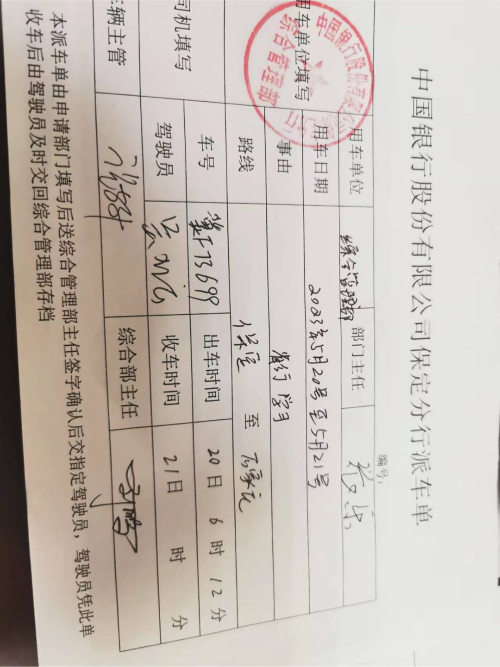 中国银行股份有限公司保定分行派车单
编号:
用车单位填写 用车单位 综合管理部 部门主任
用车日期 2023年5月20号至5月21号
事由 省行学习
路线 保定 至 石家庄
司机填写 车号 冀F13699 出车时间 20日6时12分
驾驶员 收车时间 21日 时 分
车辆主管 综合部主任
本派车单由申请部门填写后送综合管理部主任签字确认后交指定驾驶员,驾驶员凭此单
收车后由驾驶员及时交回综合管理部存档
综合管理部